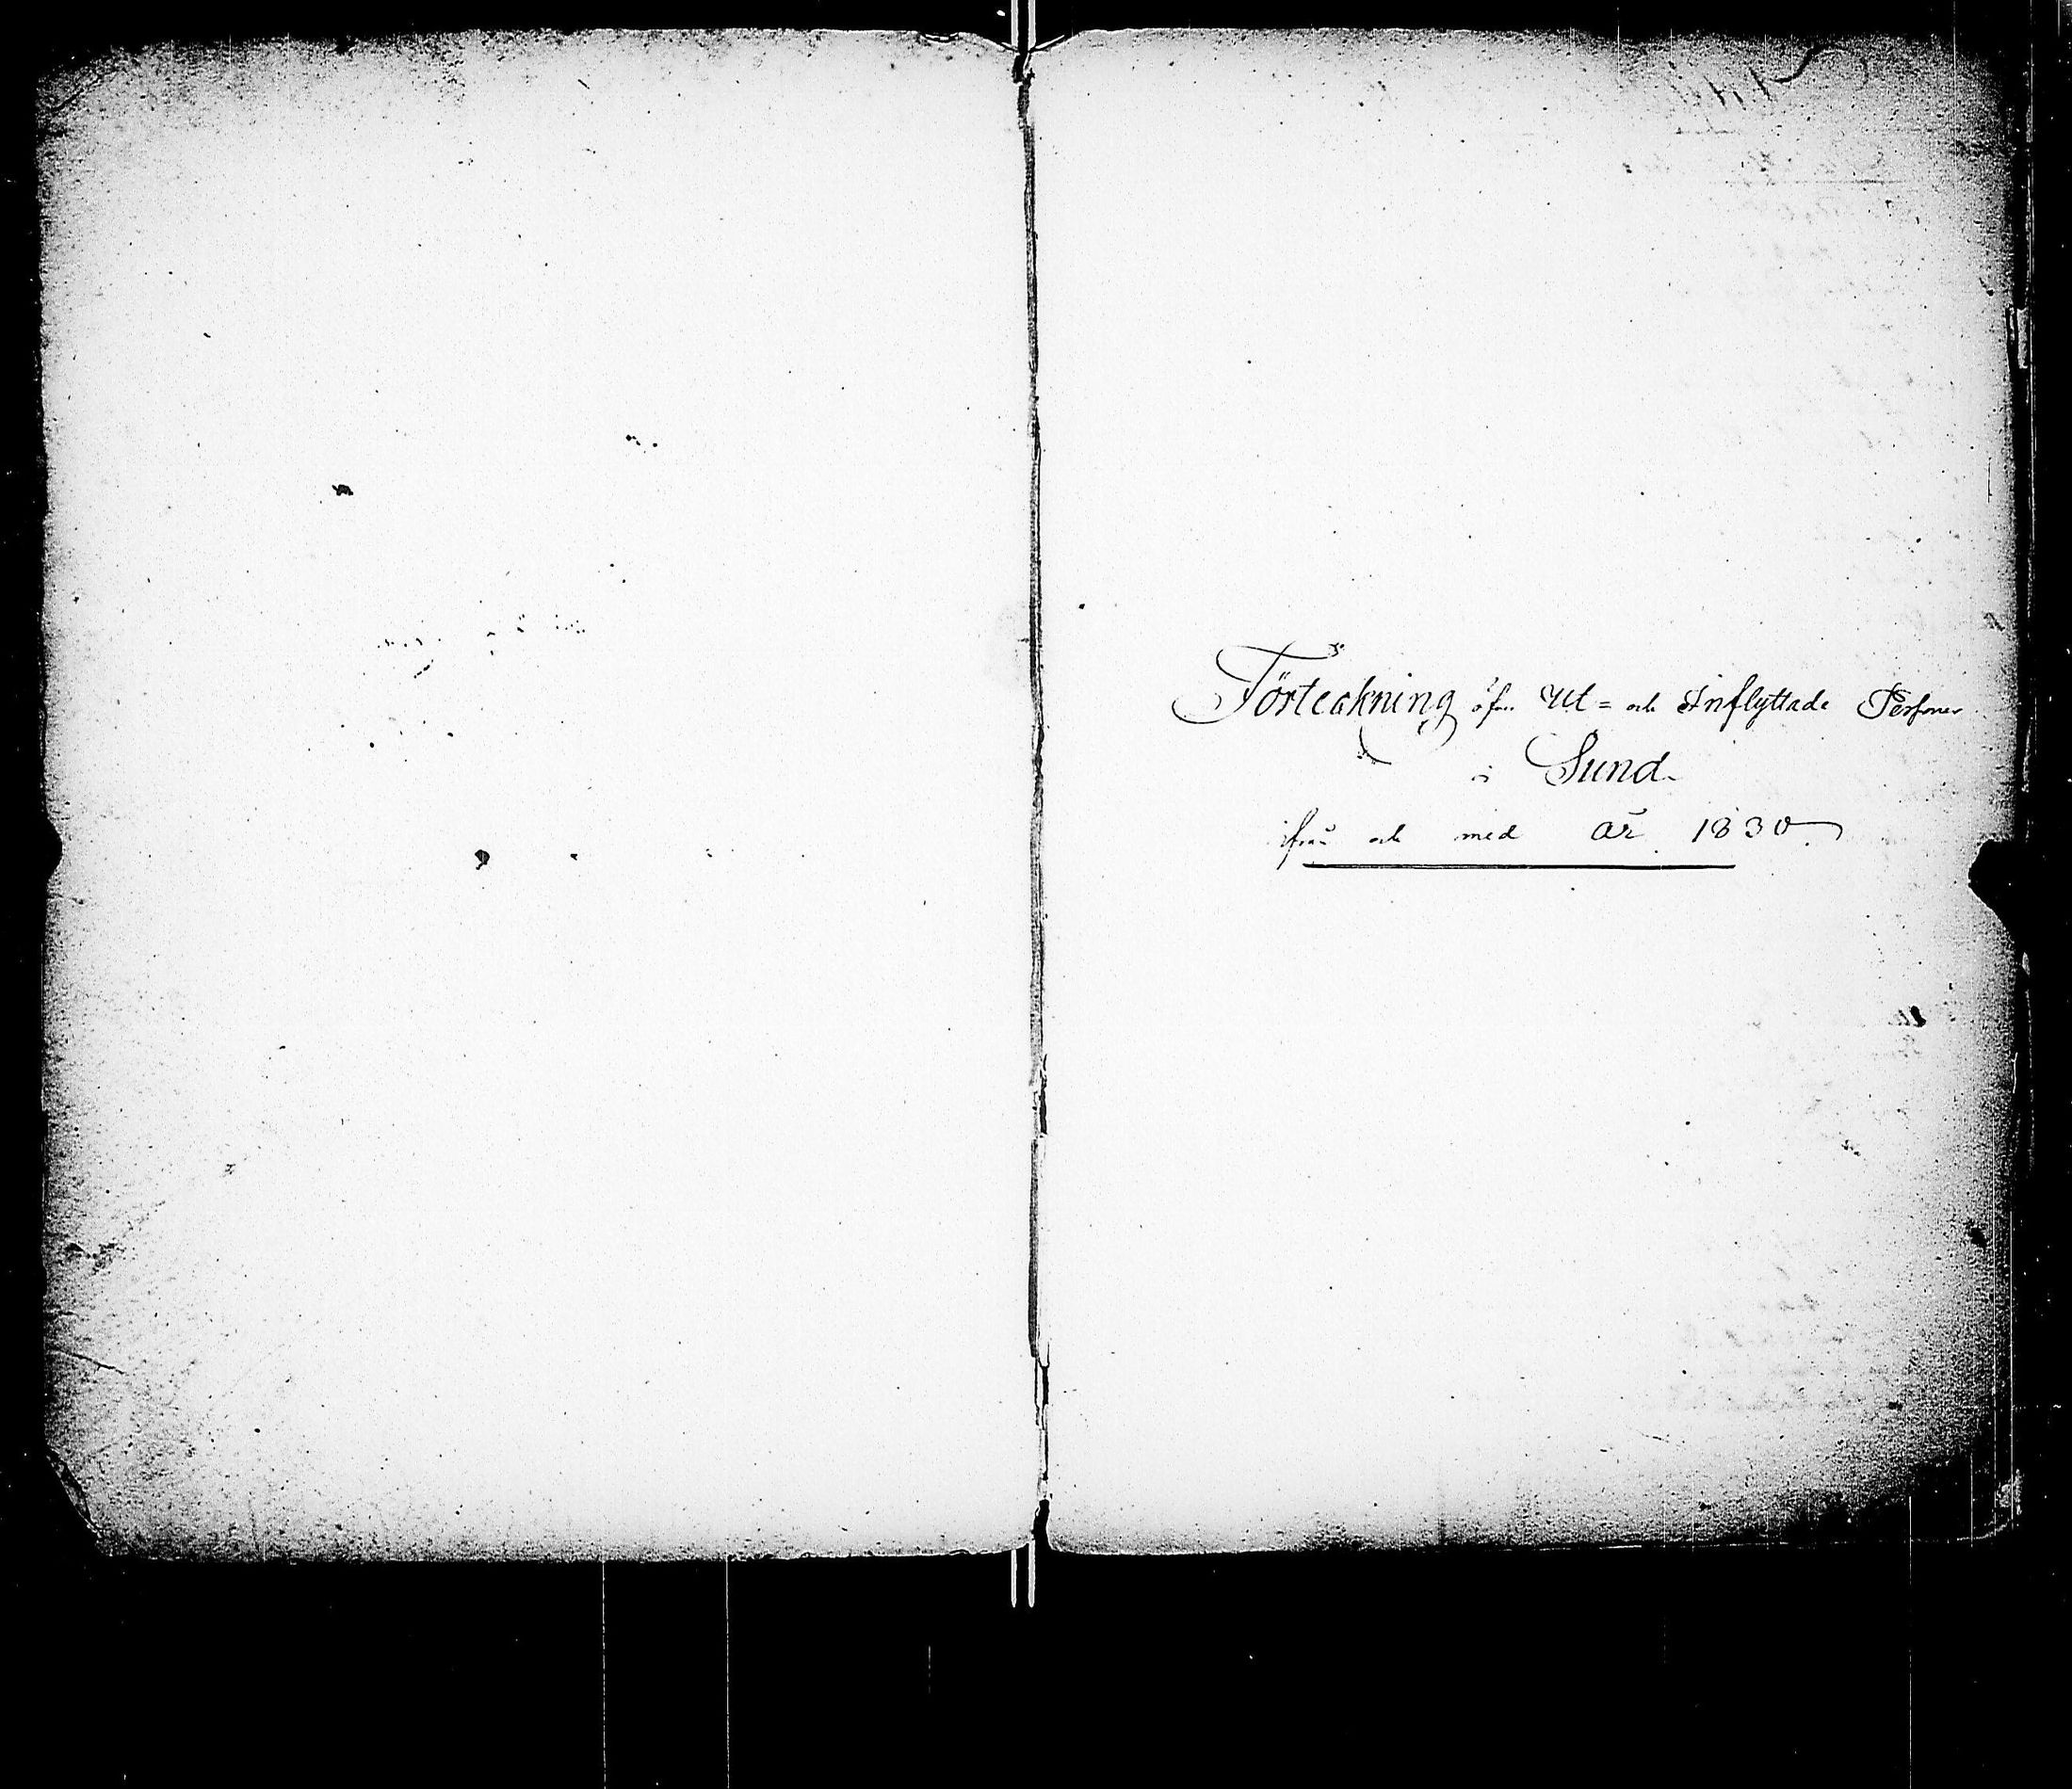 Förteckning öfver Ut= och Inflyttade Personer
i Sund
ifrån och med år 1830.